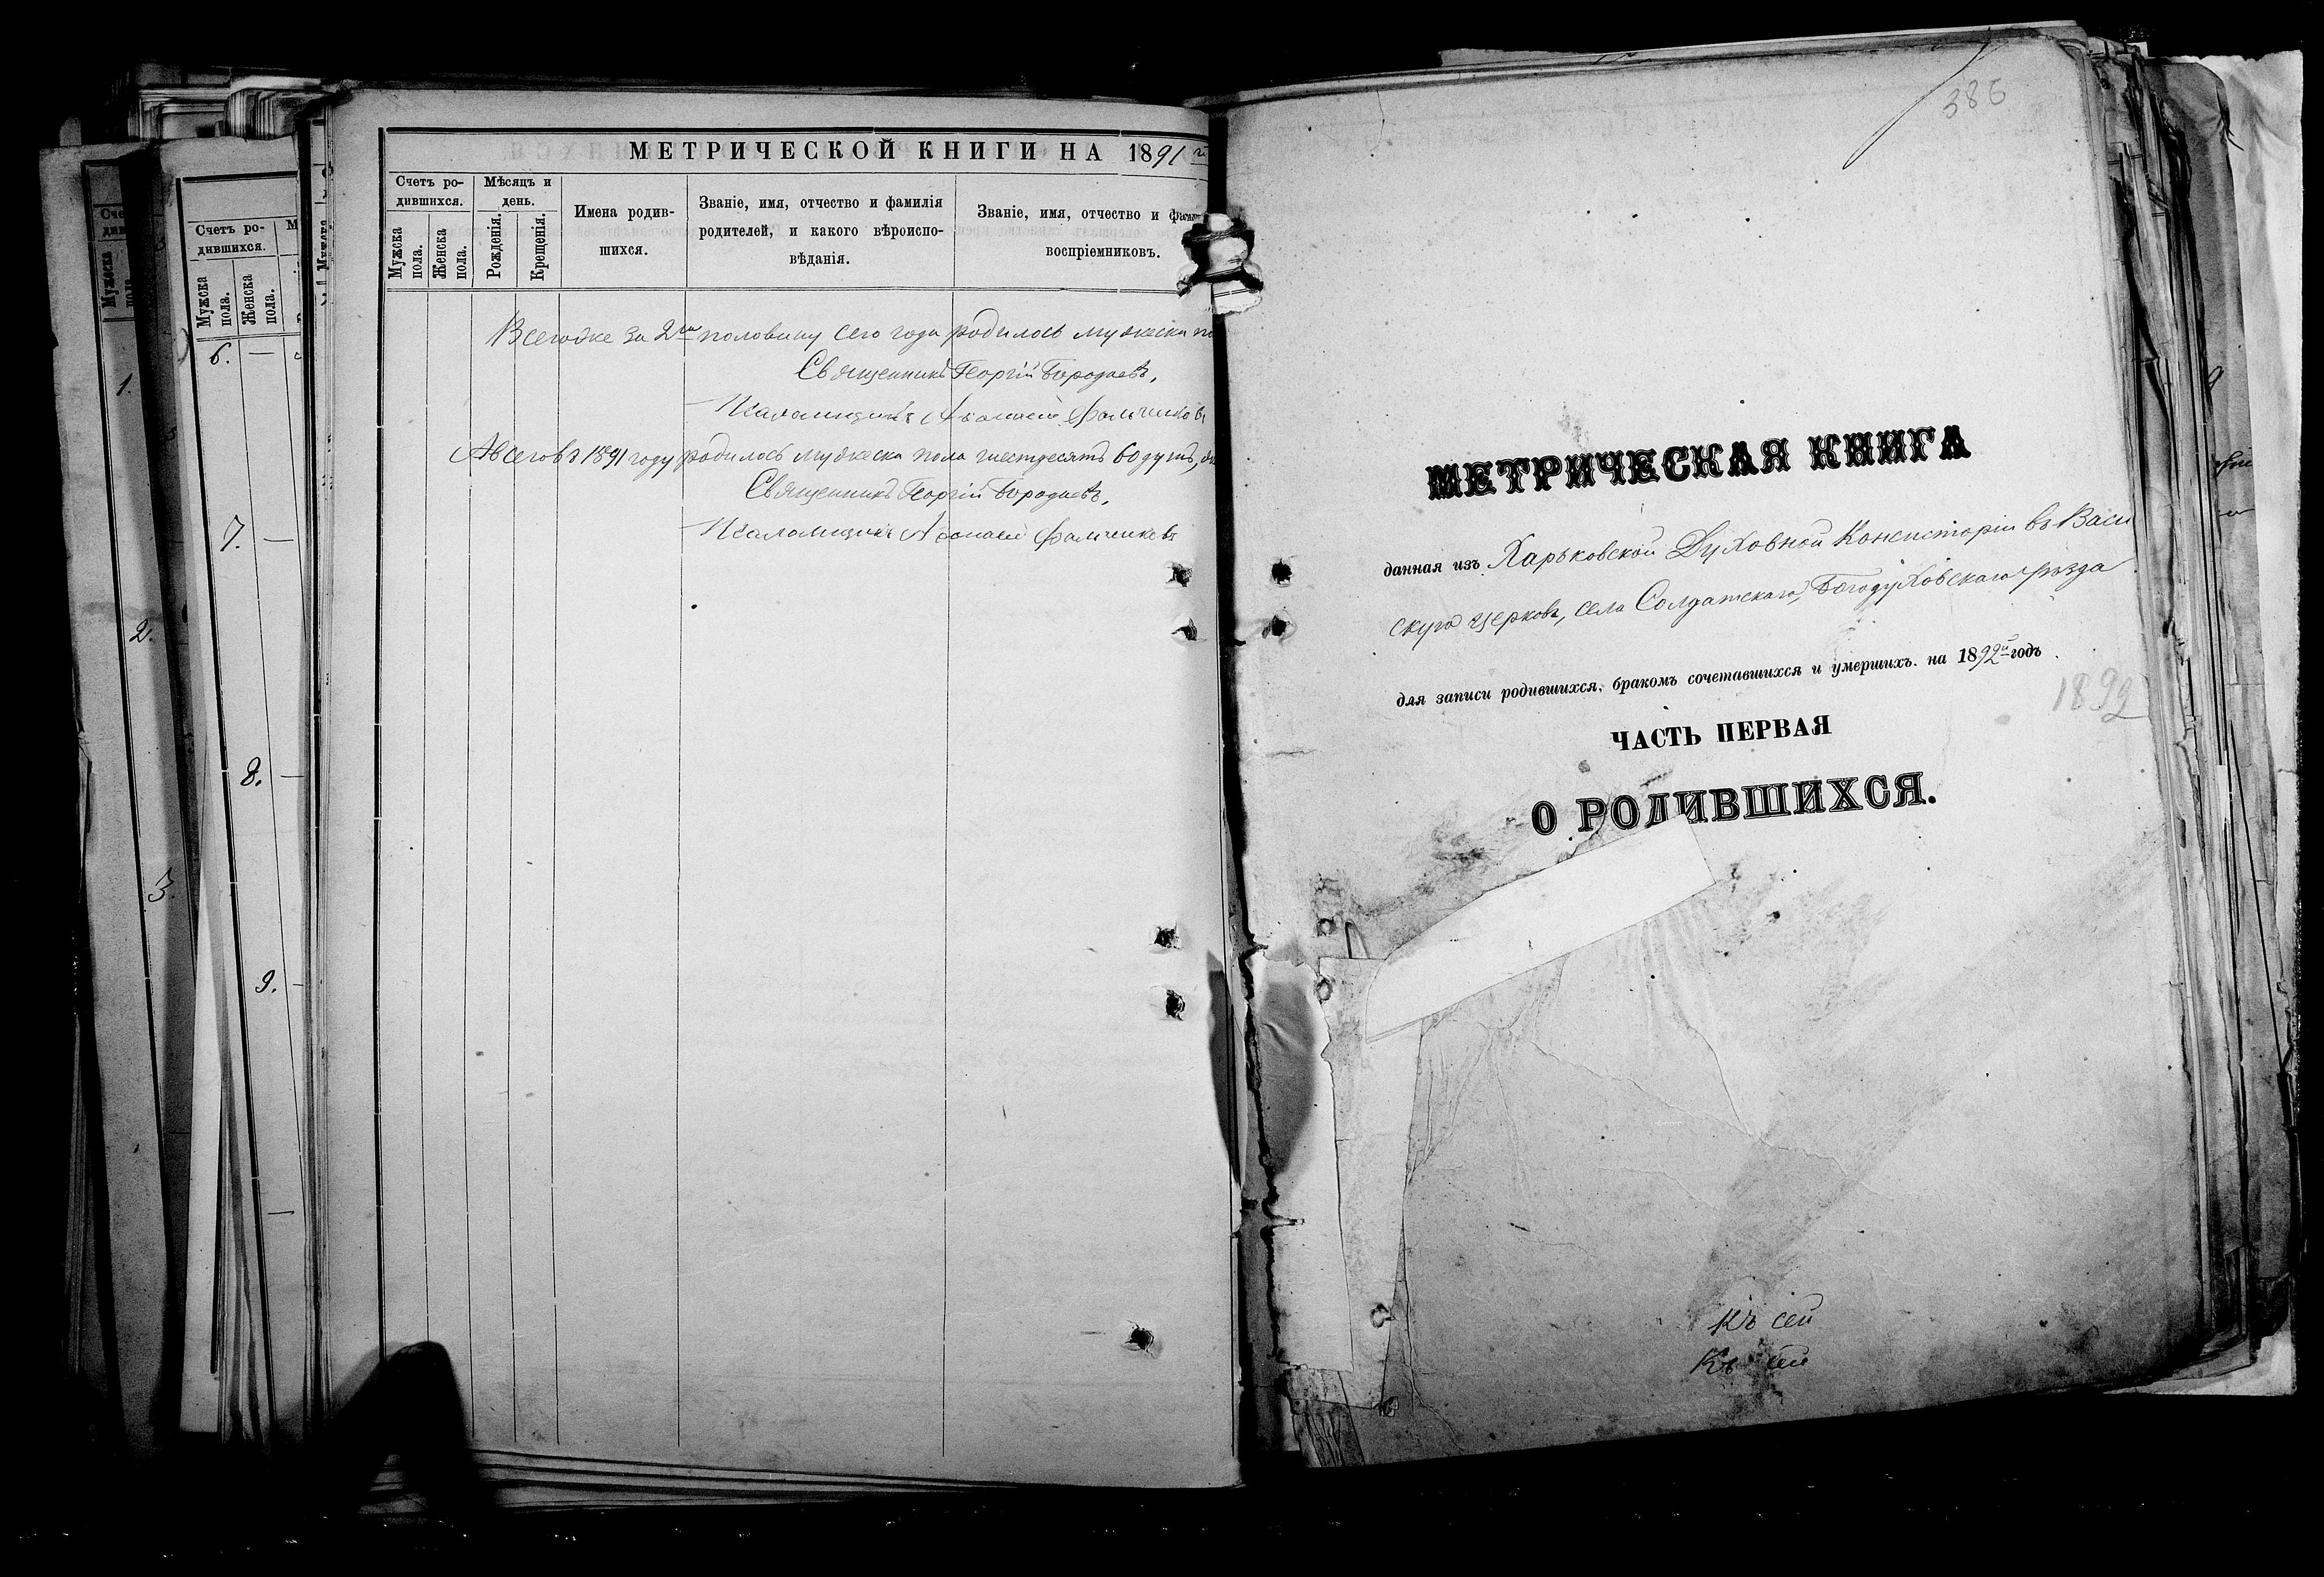 МЕТРИЧЕСКОЙ КНИГИ НА 1891
Счетъ ро-
дившихся.
Мужска
пола.
Женска
пола.
Мѣсяцъ и
день.
Рожденія.
Крещенія.
Имена родив-
шихся.
Званіе, имя, отчество и фамилія
родителей, и какого вѣроиспо-
вѣданія.
Званіе, имя, отчество и
воспріемниковъ.
Всегоже за 2ю половину сего года родилось мужеска
Священникъ Георгій Бородаевъ,
Псаломщикъ
А всего въ 1891 году родилось мужеска пола шестдесятъ 60 душъ,
Священникъ Георгій Бородаевъ,
Псаломщикъ
Счетъ ро-
дившихся.
Мужска
пола.
Женска
пола.
6. —
7. —
8. —
9. —
1.
2.
3.
386
МЕТРИЧЕСКАЯ КНИГА
данная изъ Харьковской Духовной Консисторіи въ Васи
скую церковь, села Солдатскаго, Богодуховскаго уѣзда
для записи родившихся, бракомъ сочетавшихся и умершихъ. на 1892й годъ
1892
ЧАСТЬ ПЕРВАЯ
О РОДИВШИХСЯ.
Къ сей
Къ сей